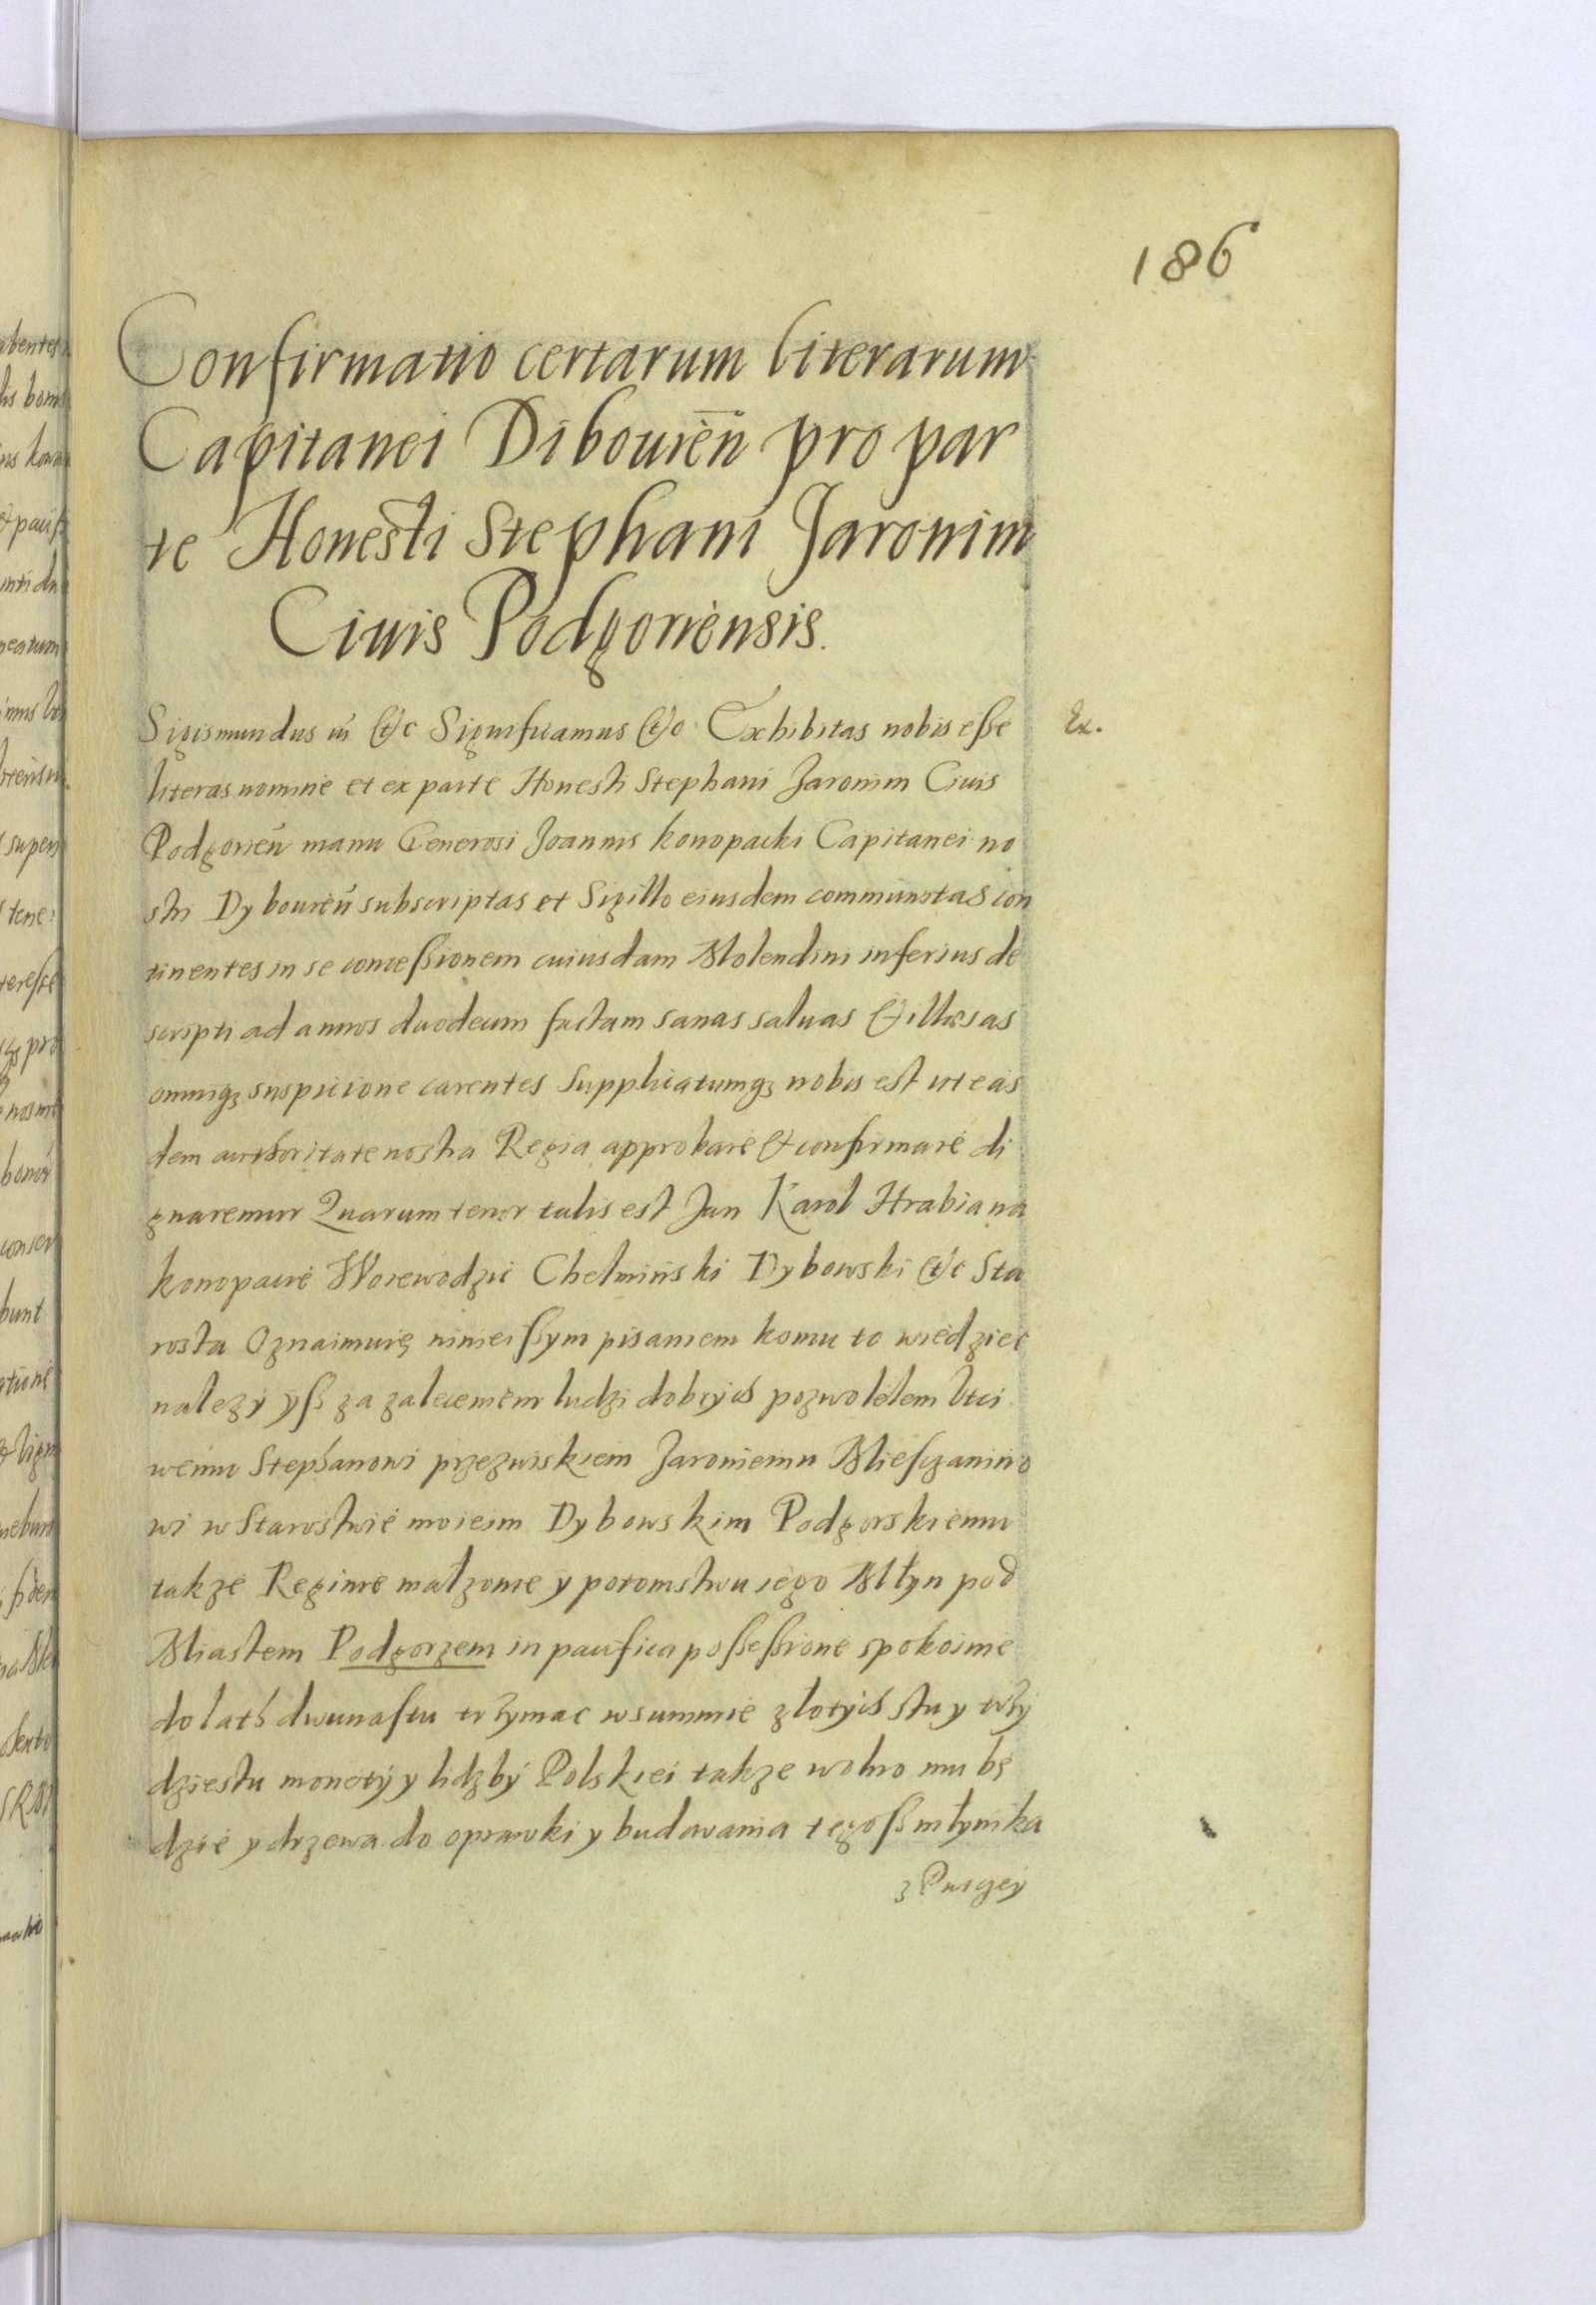 186
Confirmatio certarum literarum
Capitanei Dibouień pro par
te Honesti Stephani Jaronim
Ciuis Podgoriensis.
Sigismundus iii &c Significamus &c Exhibitas nobis eße
Ex.
literas nomine et ex parte Honesti Stephani Jaronim Ciuis
Podgorień manu Generosi Joannis konopacki Capitanei no
stri Dybouień subscriptas et Sigillo eiusdem communitas con
tinentes in se conceßionem cuiusdam Molendini inferius de
scripti ad annos duodecim factam sanas saluas & illæsas
omniqȝ suspicione carentes Supplicatumqȝ nobis est vt eas
dem authoritate nostra Regia approbare & confirmare di
gnaremur Quarum tenor talis est Jan Karol Hrabia na
konopacie Woiewodzic Chelmiński Dybowski &c Sta
rosta Oznaimuię ninieißym pisaniem komu to wiedziec
nalezy yß za zaleceniem ludzi dobrych pozwolelem Vtci
wemu Stephanowi przezwiskiem Jaroniemu Miesczanino
wi w Starostwie moieim Dybowskim Podgorskiemu
takze Reginie małzonie y potomstwu iego Młyn pod
Miastem Podgorzem in pacifica poßeßione spokoinie
do lath dwunastu trzymac w summie zlotych stu y trzy
dziestu monety y lidzby Polskiei takze wolno mu bę
dzie y drzewa do oprawki y budowania tegoß młynika
z Pusczey